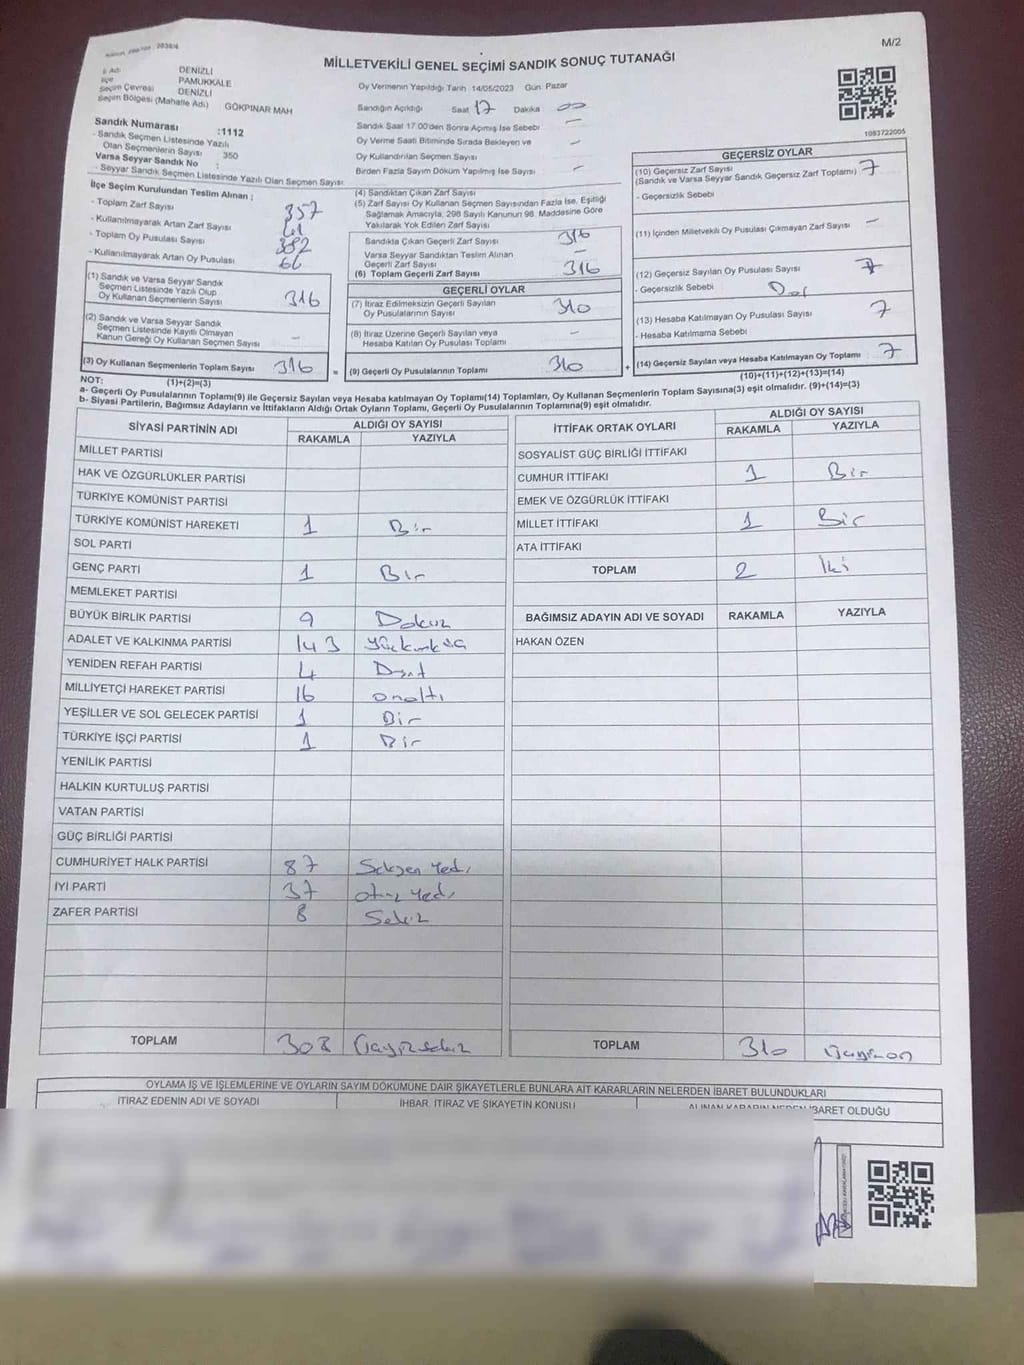 M/2
MİLLETVEKİLİ GENEL SEÇİMİ SANDIK SONUÇ TUTANAĞI
İl Adı DENİZLİ
İlçe PAMUKKALE
Seçim Çevresi DENİZLİ
Seçim Bölgesi (Mahalle Adı) GÖKPINAR MAH
Sandık Numarası :1112
- Sandık Seçmen Listesinde Yazılı
Olan Seçmenlerin Sayısı : 350
Varsa Seyyar Sandık No :
- Seyyar Sandık Seçmen Listesinde Yazılı Olan Seçmen Sayısı:
İlçe Seçim Kurulundan Teslim Alınan ;
- Toplam Zarf Sayısı 357
- Kullanılmayarak Artan Zarf Sayısı 41
- Toplam Oy Pusulası Sayısı 382
- Kullanılmayarak Artan Oy Pusulası 66
(1) Sandık ve Varsa Seyyar Sandık
Seçmen Listesinde Yazılı Olup
Oy Kullanan Seçmenlerin Sayısı 316
(2) Sandık ve Varsa Seyyar Sandık
Seçmen Listesinde Kayıtlı Olmayan
Kanun Gereği Oy Kullanan Seçmen Sayısı -
(3) Oy Kullanan Seçmenlerin Toplam Sayısı 316 =
(1)+(2)=(3)
Oy Vermenin Yapıldığı Tarih :14/05/2023 Gün: Pazar
Sandığın Açıldığı Saat 17 Dakika 00
Sandık Saat 17:00'den Sonra Açımış İse Sebebi -
Oy Verme Saati Bitiminde Sırada Bekleyen ve
Oy Kullandırılan Seçmen Sayısı -
Birden Fazla Sayım Döküm Yapılmış İse Sayısı -
(4) Sandıktan Çıkan Zarf Sayısı
(5) Zarf Sayısı Oy Kullanan Seçmen Sayısından Fazla İse, Eşitliği
Sağlamak Amacıyla, 298 Sayılı Kanunun 98. Maddesine Göre
Yakılarak Yok Edilen Zarf Sayısı
Sandıkta Çıkan Geçerli Zarf Sayısı 316
Varsa Seyyar Sandıktan Teslim Alınan
Geçerli Zarf Sayısı -
(6) Toplam Geçerli Zarf Sayısı 316
GEÇERLİ OYLAR
(7) İtiraz Edilmeksizin Geçerli Sayılan
Oy Pusulalarının Sayısı 310
(8) İtiraz Üzerine Geçerli Sayılan veya
Hesaba Katılan Oy Pusulası Toplamı -
(9) Geçerli Oy Pusulalarının Toplamı 310 +
1083722005
GEÇERSİZ OYLAR
(10) Geçersiz Zarf Sayısı 7
(Sandık ve Varsa Seyyar Sandık Geçersiz Zarf Toplamı)
- Geçersizlik Sebebi
(11) İçinden Milletvekili Oy Pusulası Çıkmayan Zarf Sayısı -
(12) Geçersiz Sayılan Oy Pusulası Sayısı 7
- Geçersizlik Sebebi
(13) Hesaba Katılmayan Oy Pusulası Sayısı 7
- Hesaba Katılmama Sebebi
(14) Geçersiz Sayılan veya Hesaba Katılmayan Oy Toplamı 7
(10)+(11)+(12)+(13)=(14)
NOT:
a- Geçerli Oy Pusulalarının Toplamı(9) ile Geçersiz Sayılan veya Hesaba Katılmayan Oy Toplamı(14) Toplamları, Oy Kullanan Seçmenlerin Toplam Sayısına(3) eşit olmalıdır. (9)+(14)=(3)
b- Siyasi Partilerin, Bağımsız Adayların ve İttifakların Aldığı Ortak Oyların Toplamı, Geçerli Oy Pusulalarının Toplamına(9) eşit olmalıdır.
SİYASİ PARTİNİN ADI ALDIĞI OY SAYISI
RAKAMLA YAZIYLA
MİLLET PARTİSİ
HAK VE ÖZGÜRLÜKLER PARTİSİ
TÜRKİYE KOMÜNİST PARTİSİ
TÜRKİYE KOMÜNİST HAREKETİ 1 Bir
SOL PARTİ
GENÇ PARTİ 1 Bir
MEMLEKET PARTİSİ
BÜYÜK BİRLİK PARTİSİ 9 Dokuz
ADALET VE KALKINMA PARTİSİ 143
YENİDEN REFAH PARTİSİ 4 Dört
MİLLİYETÇİ HAREKET PARTİSİ 16 onaltı
YEŞİLLER VE SOL GELECEK PARTİSİ 1 Bir
TÜRKİYE İŞÇİ PARTİSİ 1 Bir
YENİLİK PARTİSİ
HALKIN KURTULUŞ PARTİSİ
VATAN PARTİSİ
GÜÇ BİRLİĞİ PARTİSİ
CUMHURİYET HALK PARTİSİ 87 Seksen Yedi
İYİ PARTİ 37 otuz Yedi
ZAFER PARTİSİ 8 Sekiz
TOPLAM 308 Üçyüzsekiz
İTTİFAK ORTAK OYLARI ALDIĞI OY SAYISI
RAKAMLA YAZIYLA
SOSYALİST GÜÇ BİRLİĞİ İTTİFAKI
CUMHUR İTTİFAKI 1 Bir
EMEK VE ÖZGÜRLÜK İTTİFAKI
MİLLET İTTİFAKI 1 Bir
ATA İTTİFAKI
TOPLAM 2 İki
BAĞIMSIZ ADAYIN ADI VE SOYADI RAKAMLA YAZIYLA
HAKAN ÖZEN
TOPLAM 310 Üçyüzon
OYLAMA İŞ VE İŞLEMLERİNE VE OYLARIN SAYIM DÖKÜMÜNE DAİR ŞİKAYETLERLE BUNLARA AİT KARARLARIN NELERDEN İBARET BULUNDUKLARI
İTİRAZ EDENİN ADI VE SOYADI İHBAR, İTİRAZ VE ŞİKAYETİN KONUSU ALINAN KARARIN NEDEN İBARET OLDUĞU